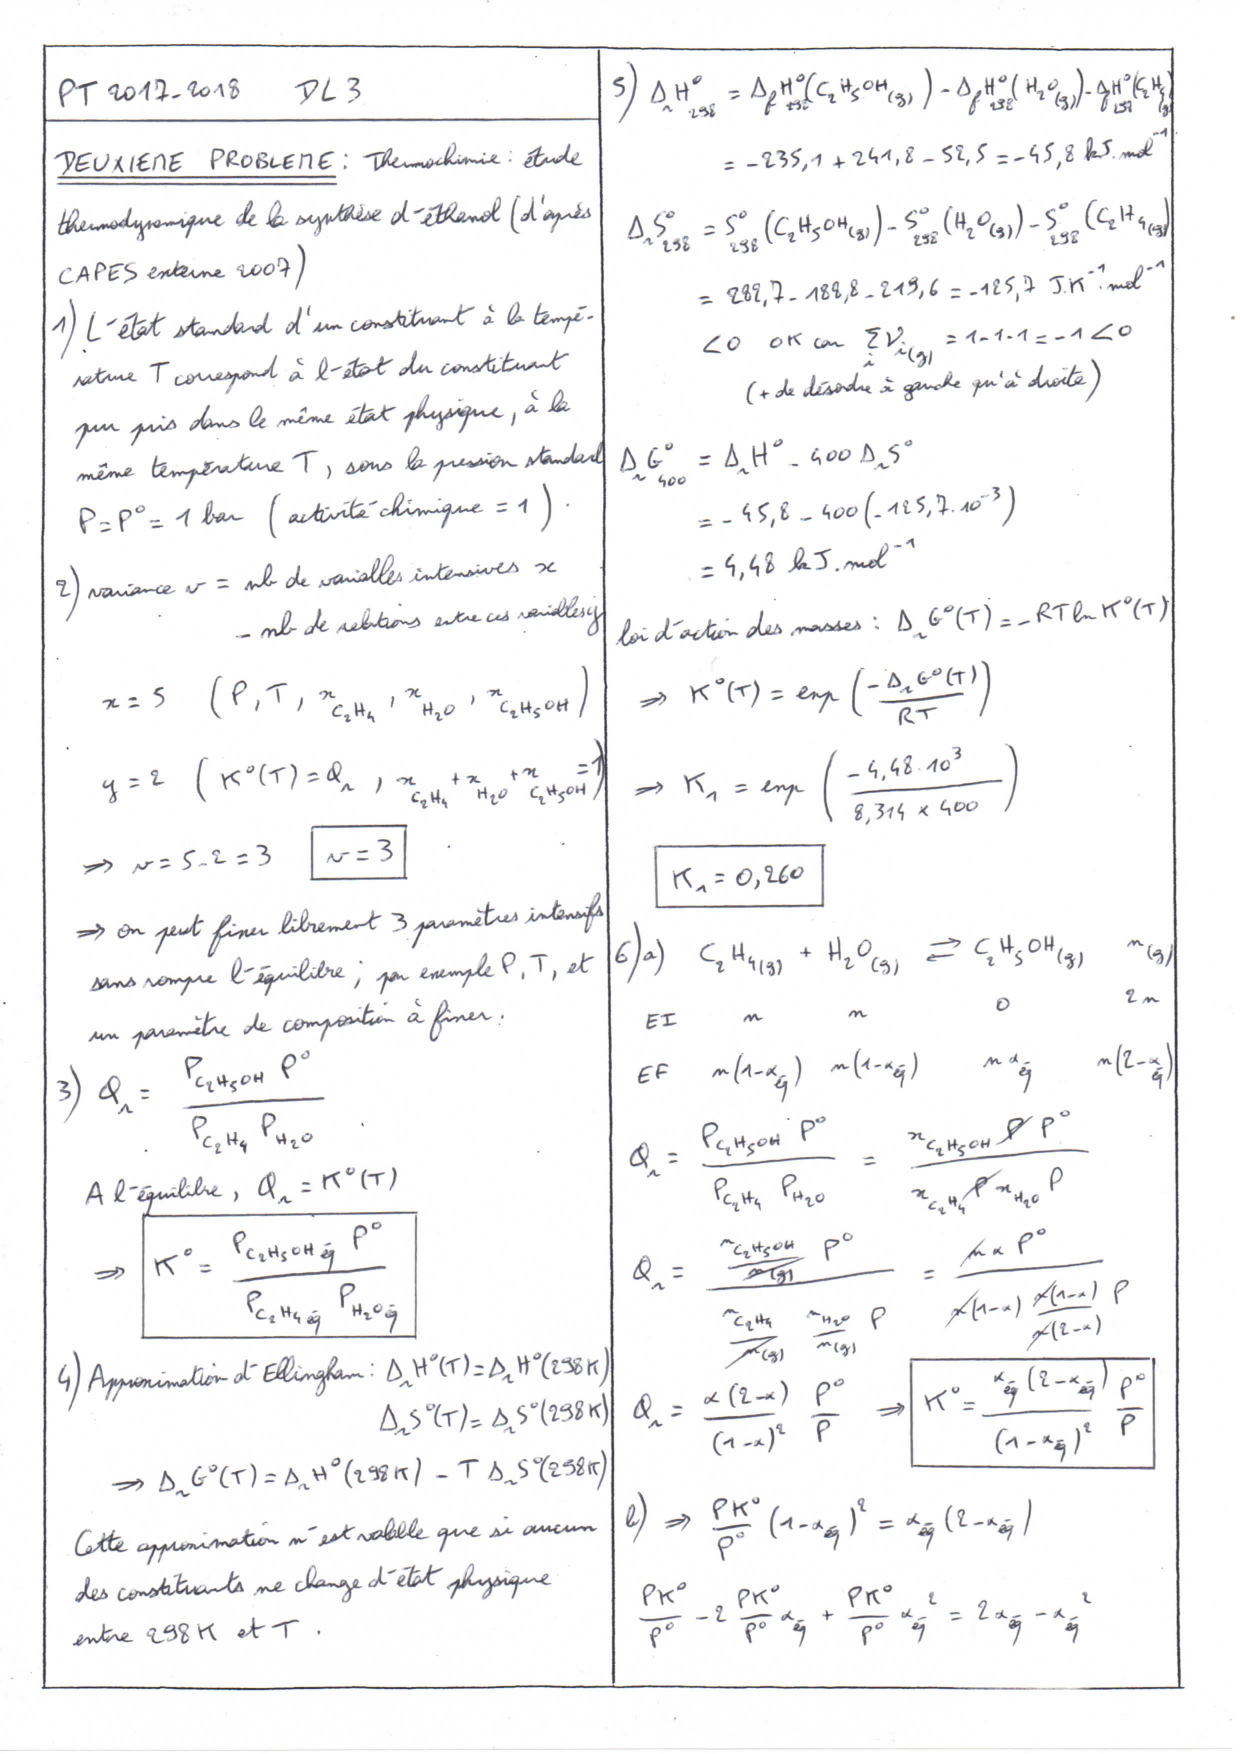 PT 2017-2018 DL3
DEUXIEME PROBLEME : Thermochimie : étude
thermodynamique de la synthèse d'éthanol (d'après
CAPES externe 2007)
1) L'état standard d'un constituant à la tempé-
rature T correspond à l'état du constituant
pur pris dans le même état physique, à la
même température T, sous la pression standard
P = P° = 1 bar (activité chimique = 1).
2) variance v = nb de variables intensives x
- nb de relations entre ces variables y
x = 5 (P, T, x_C₂H₄, x_H₂O, x_C₂H₅OH)
y = 2 (K°(T) = Qr, x_C₂H₄ + x_H₂O + x_C₂H₅OH = 1)
⇒ v = 5-2 = 3 v = 3
⇒ on peut fixer librement 3 paramètres intensifs
sans rompre l'équilibre ; par exemple P, T, et
un paramètre de composition à fixer.
3) Qr = (P_C₂H₅OH P°) / (P_C₂H₄ P_H₂O)
A l'équilibre, Qr = K°(T)
⇒ K° = (P_C₂H₅OH éq P°) / (P_C₂H₄ éq P_H₂O éq)
4) Approximation d'Ellingham : ΔrH°(T) = ΔrH°(298K)
ΔrS°(T) = ΔrS°(298K)
⇒ ΔrG°(T) = ΔrH°(298K) - T ΔrS°(298K)
Cette approximation n'est valable que si aucun
des constituants ne change d'état physique
entre 298K et T.
5) ΔrH°298 = ΔfH°298(C₂H₅OH(g)) - ΔfH°298(H₂O(g)) - ΔfH°298(C₂H₄(g))
= -235,1 + 241,8 - 52,5 = -45,8 kJ.mol⁻¹
ΔrS°298 = S°298(C₂H₅OH(g)) - S°298(H₂O(g)) - S°298(C₂H₄(g))
= 282,7 - 188,8 - 219,6 = -125,7 J.K⁻¹.mol⁻¹
<0 OK car Σi νi(g) = 1-1-1 = -1 <0
(+ de désordre à gauche qu'à droite)
ΔrG°400 = ΔrH° - 400 ΔrS°
= -45,8 - 400(-125,7.10⁻³)
= 4,48 kJ.mol⁻¹
loi d'action des masses : ΔrG°(T) = -RT ln K°(T)
⇒ K°(T) = exp(-ΔrG°(T) / RT)
⇒ K₁ = exp(-4,48.10³ / 8,314 × 400)
K₁ = 0,260
6)a) C₂H₄(g) + H₂O(g) ⇌ C₂H₅OH(g) n(g)
EI n n 0 2n
EF n(1-αéq) n(1-αéq) nαéq n(2-αéq)
Qr = (P_C₂H₅OH P°) / (P_C₂H₄ P_H₂O) = (x_C₂H₅OH P P°) / (x_C₂H₄ P x_H₂O P)
Qr = (n_C₂H₅OH / n(g) P°) / (n_C₂H₄ / n(g) n_H₂O / n(g) P) = (nα P°) / (n(1-α) n(1-α) / n(2-α) P)
Qr = α(2-α) / (1-α)² P° / P ⇒ K° = αéq(2-αéq) / (1-αéq)² P° / P
b) ⇒ PK° / P° (1-αéq)² = αéq(2-αéq)
PK° / P° - 2 PK° / P° αéq + PK° / P° αéq² = 2αéq - αéq²